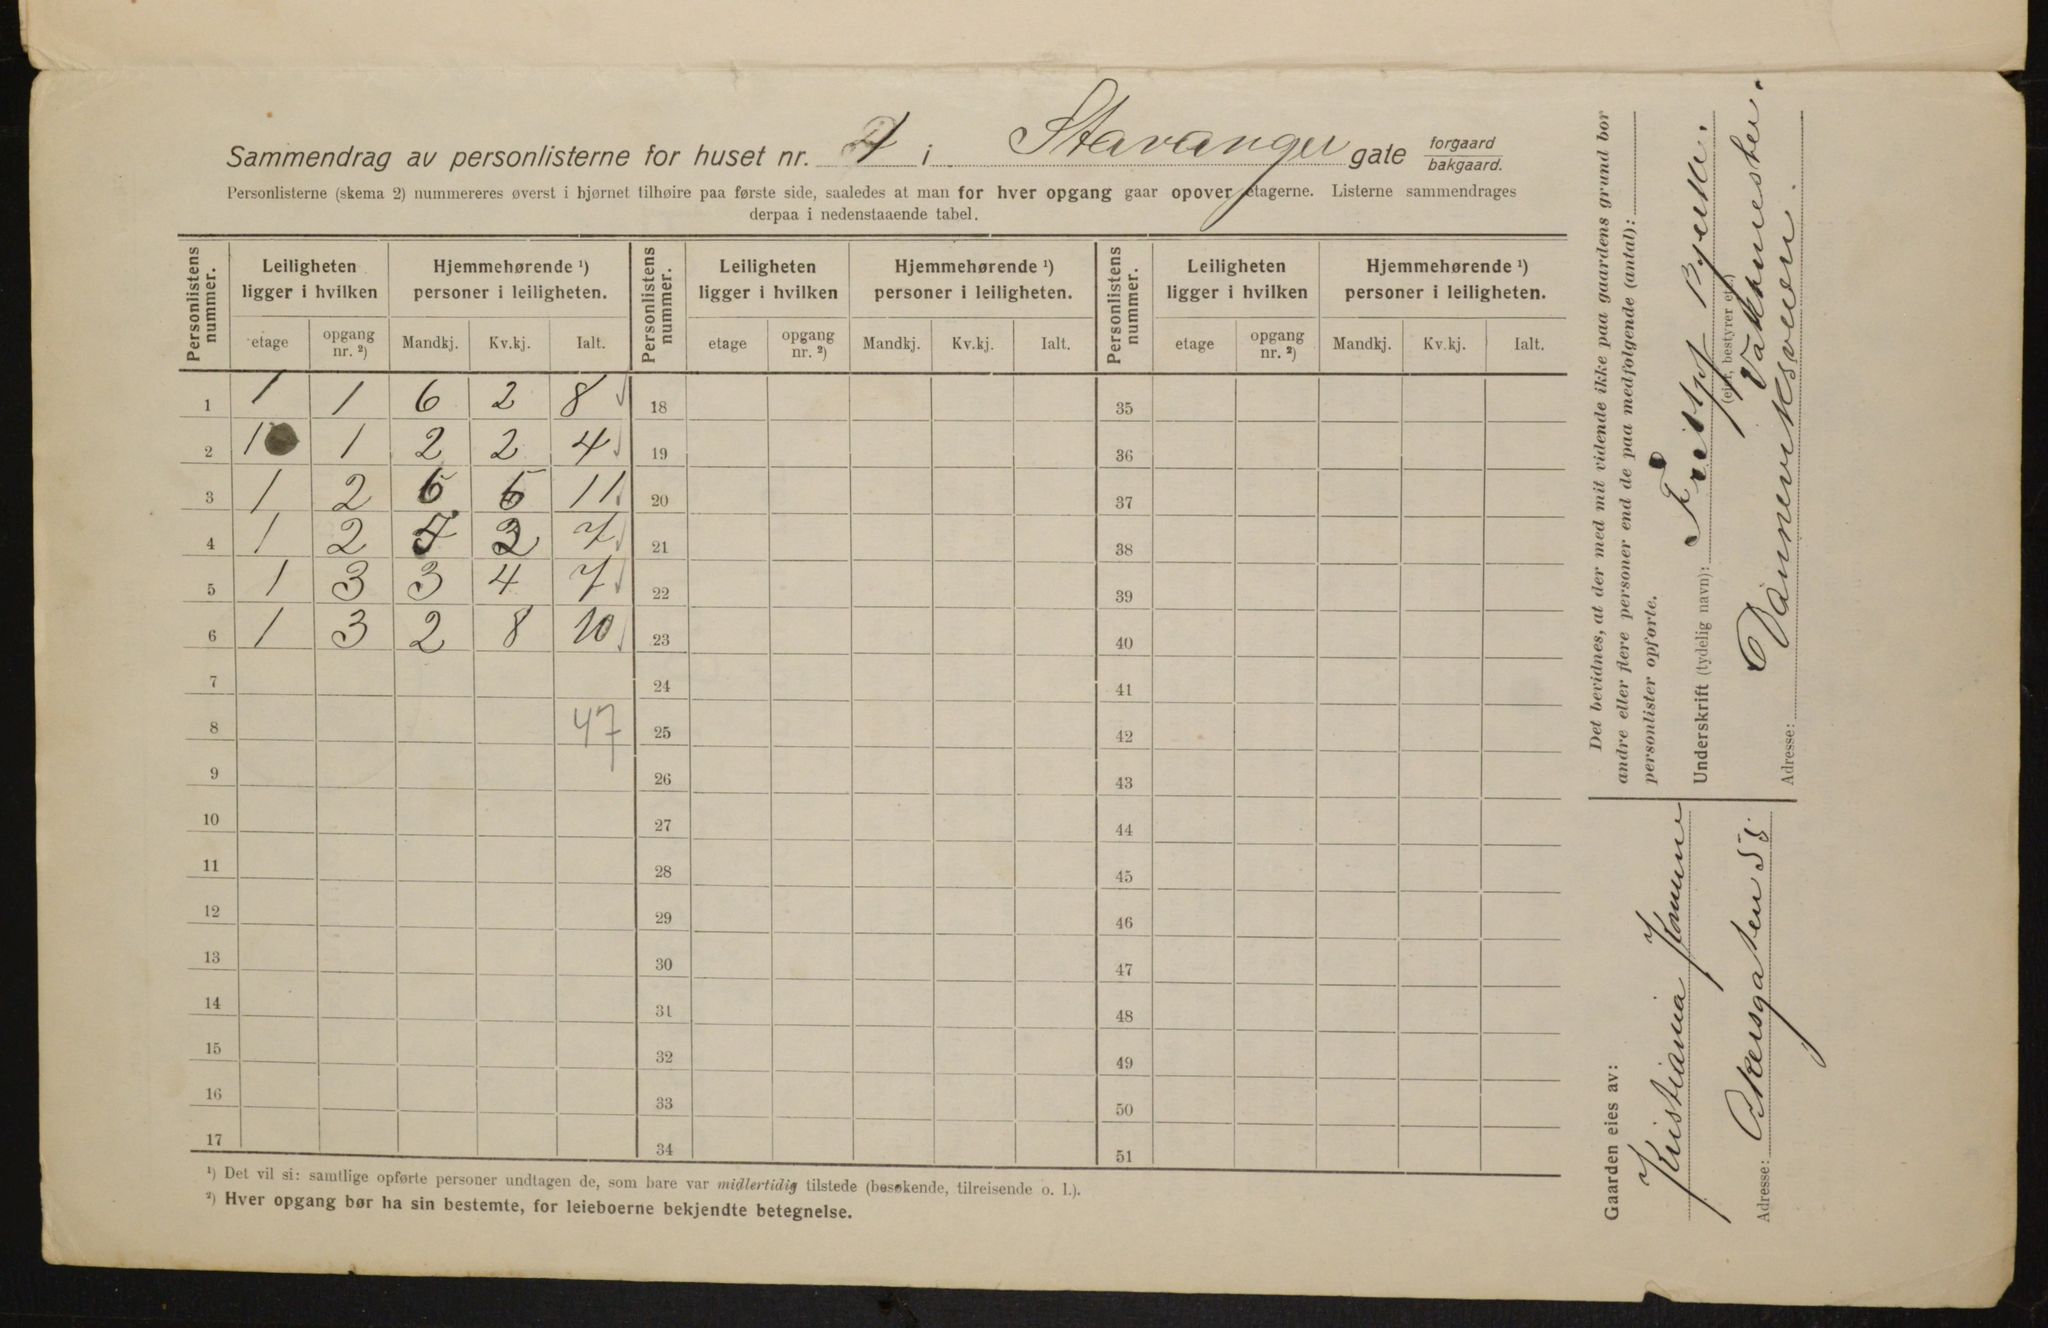 Sammendrag av personlisterne for huset nr. 4 i Stavanger gate forgaard bakgaard.
Personlisterne (skema 2) nummereres øverst i hjørnet tilhøire paa første side, saaledes at man for hver opgang gaar opover etagerne. Listerne sammendrages
derpaa i nedenstaaende tabel.
Personlistens nummer. Leiligheten ligger i hvilken Hjemmehørende ¹) personer i leiligheten. Personlistens nummer. Leiligheten ligger i hvilken Hjemmehørende ¹) personer i leiligheten. Personlistens nummer. Leiligheten ligger i hvilken Hjemmehørende ¹) personer i leiligheten.
etage opgang nr. ²) Mandkj. Kv.kj. Ialt. etage opgang nr. ²) Mandkj. Kv.kj. Ialt. etage opgang nr. ²) Mandkj. Kv.kj. Ialt.
1 1 1 6 2 8 18 35
2 1 1 2 2 4 19 36
3 1 2 6 5 11 20 37
4 1 2 3 7 21 38
5 1 3 3 4 7 22 39
6 1 3 2 8 10 23 40
7 24 41
8 47 25 42
9 26 43
10 27 44
11 28 45
12 29 46
13 30 47
14 31 48
15 32 49
16 33 50
17 34 51
¹) Det vil si: samtlige opførte personer undtagen de, som bare var midlertidig tilstede (besøkende, tilreisende o. l.).
²) Hver opgang bør ha sin bestemte, for leieboerne bekjendte betegnelse.
Det bevidnes, at der med mit vidende ikke paa gaardens grund bor
andre eller flere personer end de paa medfølgende (antal):
personlister opførte.
Underskrift (tydelig navn):
(eier, bestyrer etc.)
Vaktmester.
Adresse: Dannevirksveien
Gaarden eies av:
Kristiania Komune
Adresse: Akersgaten 55